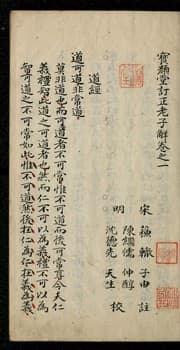 寶顏堂訂正老子解卷之一
宋 蘇轍 子由 註
明 陳繼儒 仲醇
沈德先 天生 校
道經
道可道非常道
莫非道也而可道者不可常惟不可道而後可常耳今夫仁
義禮智此道之可道者也然而仁不可以為義禮不可以為
智可道之不可常如此惟不可道然後在仁為仁在義為義